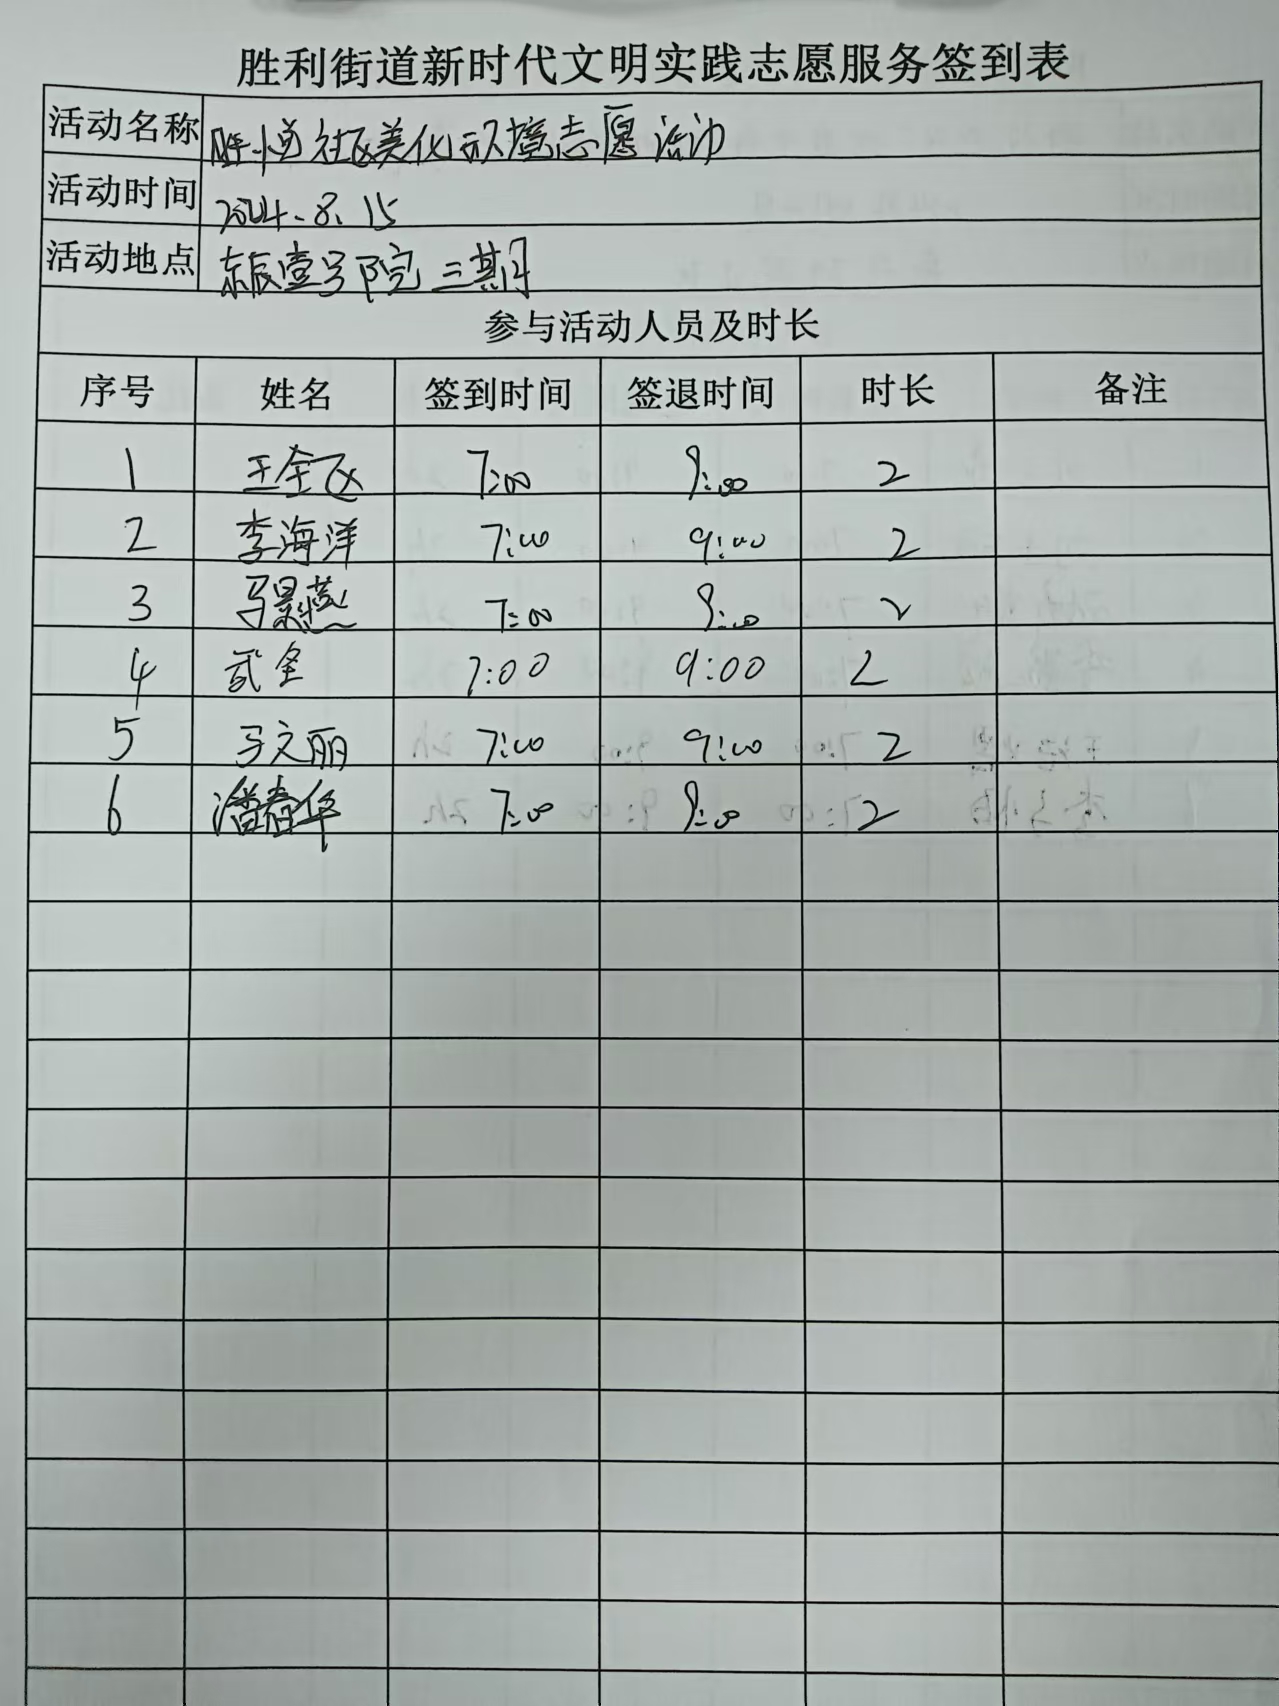 胜利街道新时代文明实践志愿服务签到表
活动名称 胜恒社区美化环境志愿活动
活动时间 2024.8.15
活动地点 东辰壹号院三期
参与活动人员及时长
序号 姓名 签到时间 签退时间 时长 备注
1 王全飞 7:00 9:00 2
2 李海洋 7:00 9:00 2
3 马景燕 7:00 9:00 2
4 武全 7:00 9:00 2
5 马文丽 7:00 9:00 2
6 潘春华 7:00 9:00 2